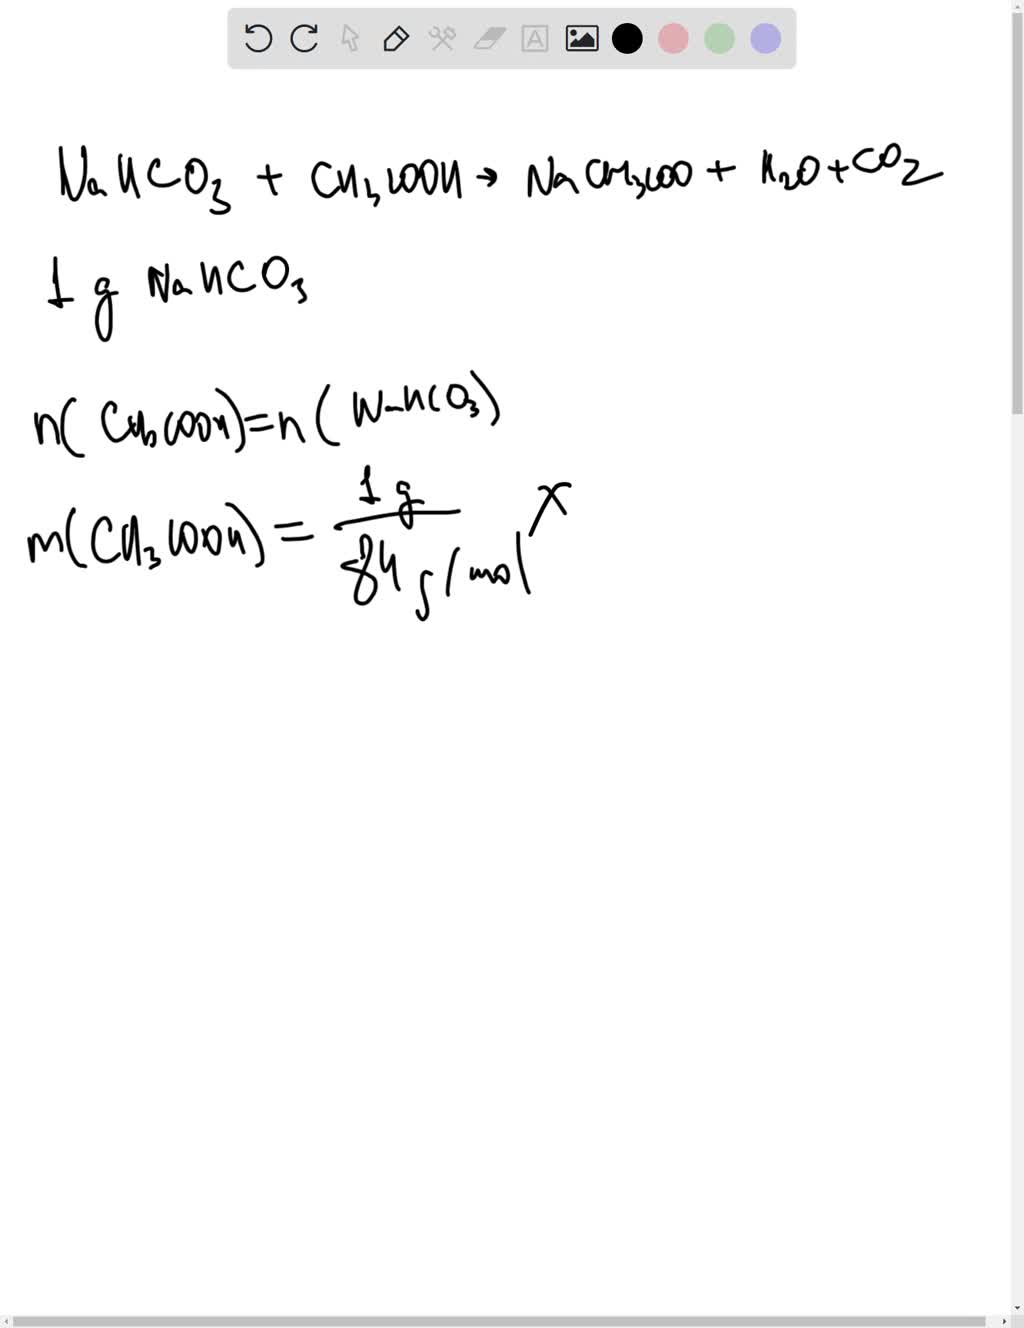 NaHCO3 + CH3COOH → NaCH3COO + H2O + CO2
1 g NaHCO3
n(CH3COOH) = n(NaHCO3)
m(CH3COOH) = 1 g / 84 g/mol x